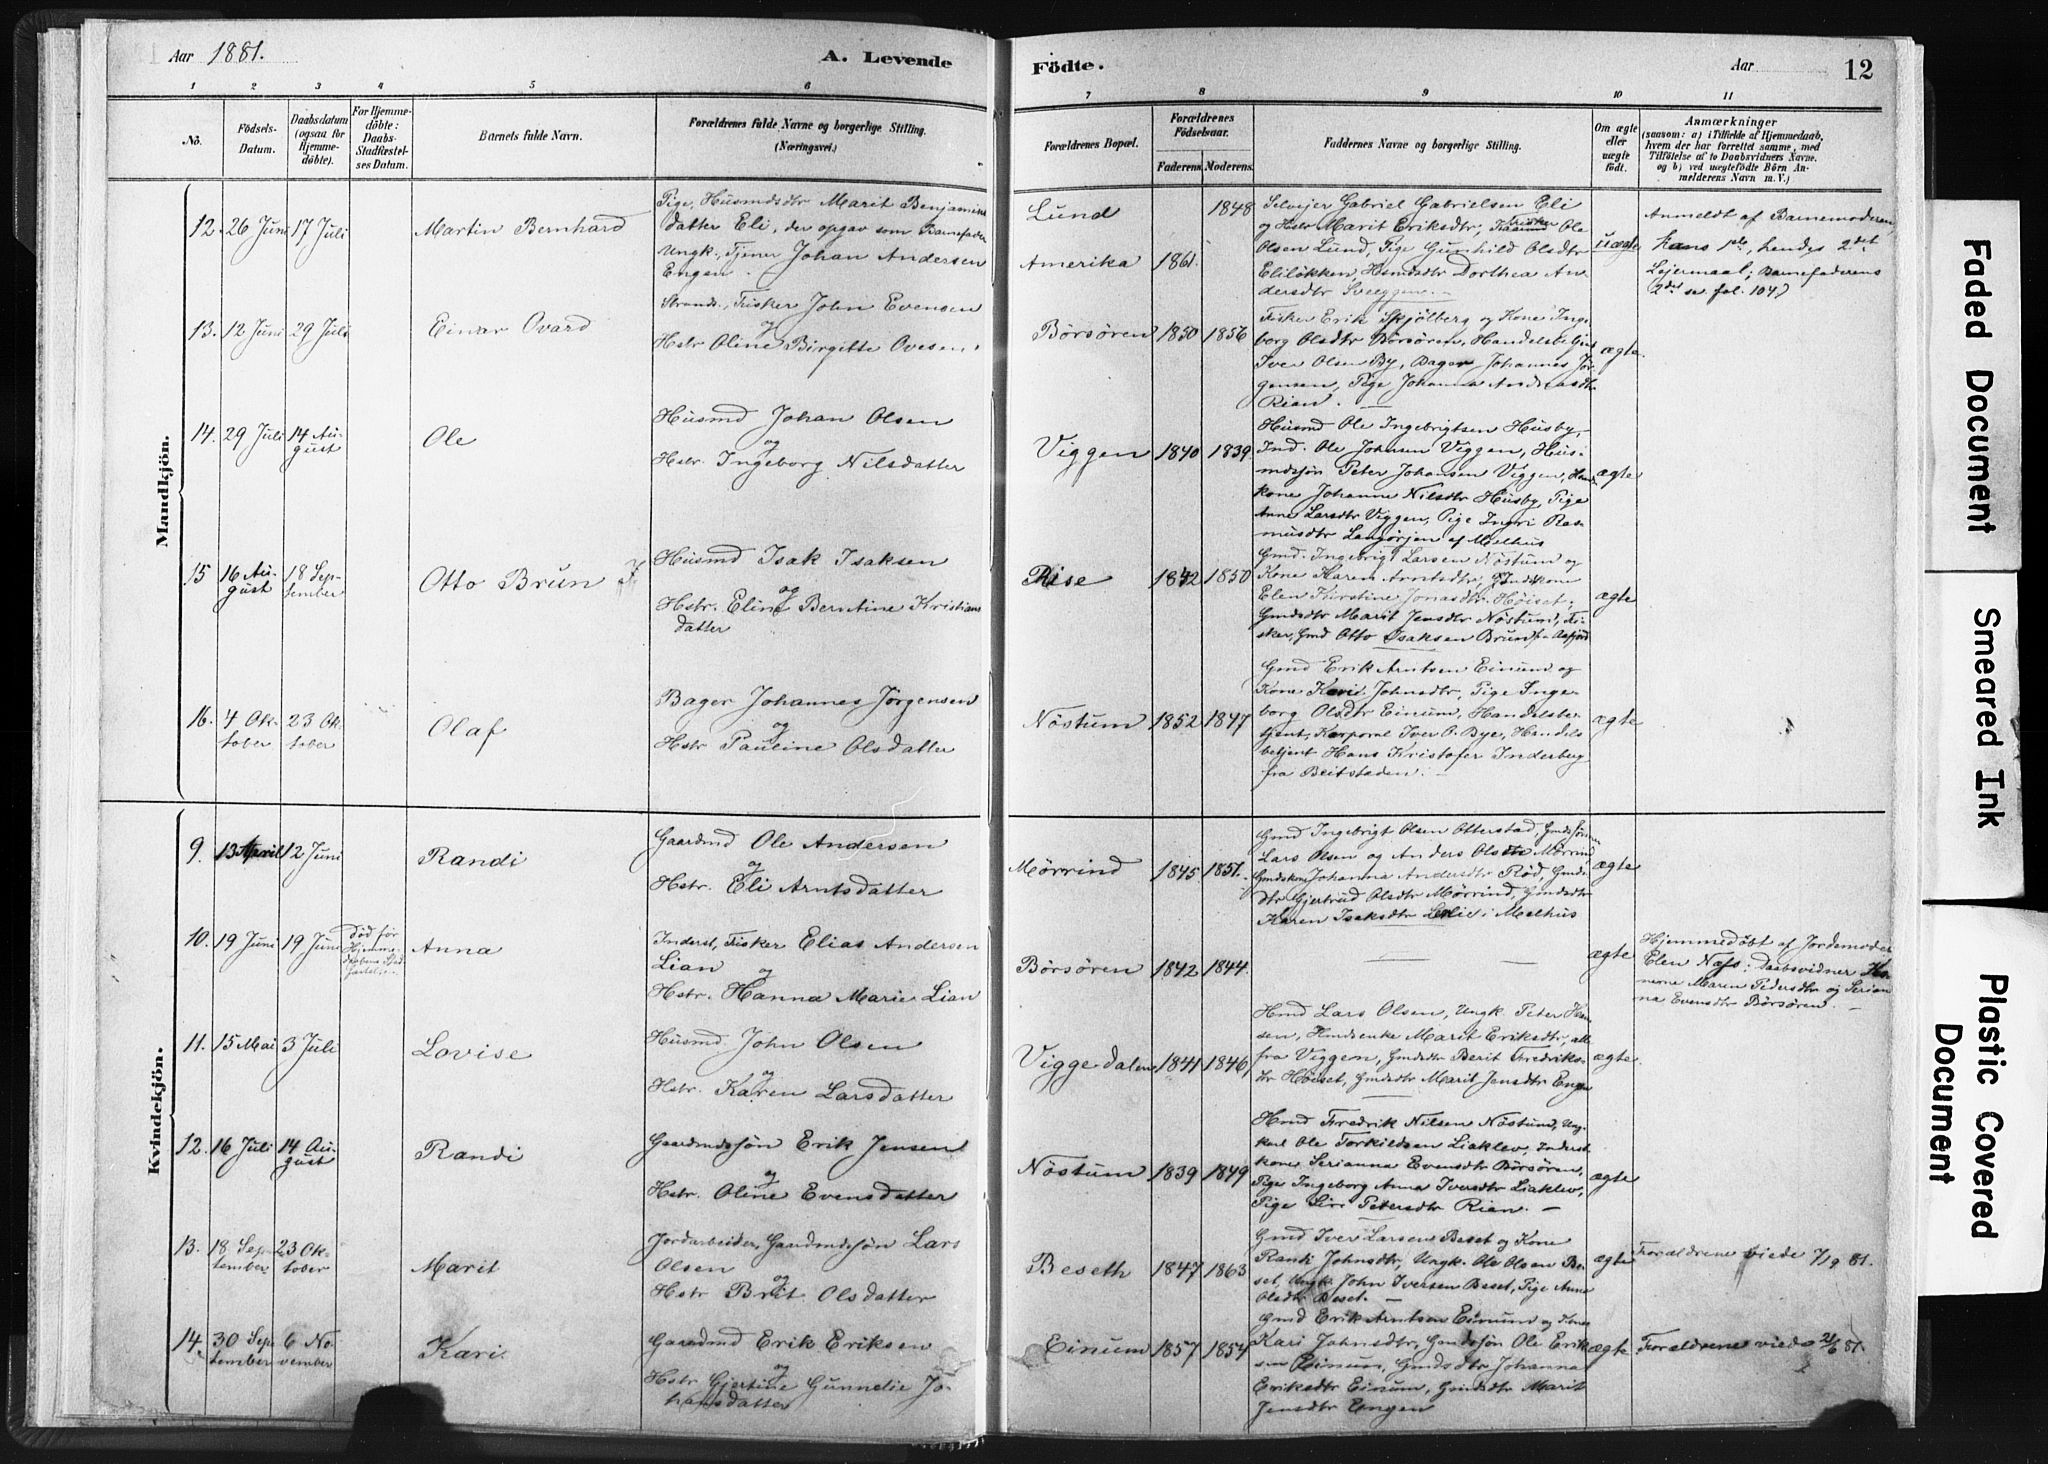 Aar 1881.
A. Levende
Födte.
Aar
12
1 2 3 4 5 6
7 8 9 10 11
No.
Födsels-
Datum.
Daabsdatum
(ogsaa for
Hjemme-
döbte).
For Hjemme-
döbte:
Daabs-
Stadfæstel-
ses Datum.
Barnets fulde Navn.
Forældrenes fulde Navne og borgerlige Stilling.
(Næringsvei.)
Forældrenes Bopæl.
Forældrenes
Födselsaar.
Faderens. Moderens.
Faddernes Navne og borgerlige Stilling.
Om ægte
eller
uægte
födt.
Anmærkninger
(saasom: a) i Tilfælde af Hjemmedaab,
hvem der har forrettet samme, med
Tilföielse af to Daabsvidners Navne.
og b) ved uægtefödte Börn An-
melderens Navn m. V.)
Mandkjön.
12. 26 Juni 17 Juli
Martin Bernhard
Pige, Husmdsdtr Marit Benjamins
datter Eli, der opgav som Barnefader
Ungk., Tjener Johan Andersen
Engen.
Lund 1848
Amerika 1861.
Selveier Gabriel Gabrielsen Eli
og Hstr Marit Eriksdtr, Fisker Ole
Olsen Lund, Pige Gunhild Olsdtr
Elilökken, Hsmdsdtr Dorthea An-
dersdtr Sveeggen.
uægte
Anmeldt af Barnemoderen,
hans 1ste, hendes 2det
Leiermaal; Barnefaderens
2det se fol. 104
13. 12 Juni 29 Juli
Einar Ovard
Strands., Fisker John Evensen
og
Hstr Oline Birgitte Ovesen.
Börsören 1850 1856
Fisker Erik Skjölberg og Kone Inge-
borg Olsdtr Börsören, Handelsbetjent
Iver Olsen By, Bager Johannes Jör-
gensen, Pige Johanna Andreasdtr
Rian.
ægte
14. 29 Juli 14 Au-
gust
Ole
Husmd Johan Olsen
og
Hstr. Ingeborg Nilsdatter
Viggen 1840 1839
Husmd Ole Ingebrigtsen Husby,
Ind. Ole Johnsen Viggen, Hus-
mdssön Peter Johansen Viggen,
kone Johanne Nilsdtr Husby, Pige
Anne Larsdtr Viggen, Pige Ingri Ras-
musdtr Langörjen af Melhus
ægte
15 16 Au-
gust 18 Sep-
tember
Otto Brun
Husmd Isak Isaksen
og
Hstr. Eline Berntine Kristians
datter
Rise 1842 1850
Gmd. Ingebrigt Larsen Nöstum og
Kone Karen Arntsdtr, Gmdskone
Elen Kirstine Jonasdtr Höiset,
Gmdsdtr Marit Jensdtr Nöstum, Fi-
sker, Gmd Otto Isaksen Brun fra Aafjord
ægte
16. 4 Ok-
tober 23 Ok-
tober
Olaf
Bager Johannes Jörgensen
og
Hstr Pauline Olsdatter
Nöstum 1852 1847
Gmd Erik Arntsen Einum og
Kone Kari Johnsdtr, Pige Inge-
borg Olsdtr Einum, Handelsbe-
tjent, Korporal Iver O. Bye, Handels
betjent Hans Kristofer Inderberg
fra Beitstaden.
ægte
Kvindekjön.
9. 13 April 12 Juni
Randi
Gaardmd Ole Andersen
og
Hstr. Eli Arntsdatter
Mörrind 1845 1851.
Gmd Ingebrigt Olsen Otterstad, Gmdssönnerne
Lars Olsen og Anders Olsen Mörrind,
Gmdskone Johanna Andersdtr Röd, Gmds-
dtr Gjertrud Olsdtr Mörrind, Gmdsdtr
Karen Isaksdtr Lelie i Melhus
ægte
10. 19 Juni 19 Juni
död för
Hjemme-
daabens Stad-
fæstelse
Anna
Inderst, Fisker Elias Andersen
Lian
og
Hstr. Hanna Marie Lian
Börsören 1842 1844.
ægte
Hjemmedöbt af Jordemoder
Elen Næss; Daabsvidner Ko-
nerne Maren Pedersdtr og Serian-
na Evensdtr Börsören.
11. 15 Mai 3 Juli
Lovise
Husmd. John Olsen
og
Hstr. Karen Larsdatter
Viggedalen 1841 1846
Hmd Lars Olsen, Ungk. Peter Han-
sen, Hmdsenke Marit Eriksdtr, alle
fra Viggen, Gmdsdtr Berit Fredriks-
dtr Höiset, Gmdsdtr Marit Jensdtr Engen
ægte
12. 16 Juli 14 Au-
gust
Randi
Gaardmdssön Erik Jensen
og
Hstr. Oline Evensdatter
Nöstum 1839 1849
Hmd Fredrik Nilsen Nöstum, Ung-
karl Ole Torkildsen Liaklev, Inderst
kone Serianna Evensdtr Börsören,
Pige Ingeborg Anna Iversdtr Liaklev,
Pige Siri Petersdtr Rian.
ægte
13. 18 Sep-
tember 23 Ok-
tober
Marit
Jordarbeider, Gaardmdssön Lars
Olsen
og
Hstr Brit Olsdatter
Beseth 1847 1863
Gmd Iver Larsen Beset og Kone
Randi Johnsdtr, Ungk. Ole Olsen Be-
set, Ungk. John Iversen Beset, Pige Anne
Olsdtr Beset.
ægte
Forældrene viede 7/9 81.
14. 30 Sep-
tember 6 No-
vember
Kari
Gaardmd Erik Eriksen
og
Hstr Gjertine Gunnelie Jo-
hansdatter
Einum 1857 1854
Gmd Erik Arntsen Einum og Kone
Kari Johnsdtr, Gmdssön Ole Erik-
sen Einum, Gmdsdtr Johanna
Eriksdtr Einum, Gmdsdtr Marit
Jensdtr Engen
ægte
Forældrene viede 21/6 81.
Faded Document
Smeared Ink
Plastic Covered
Document